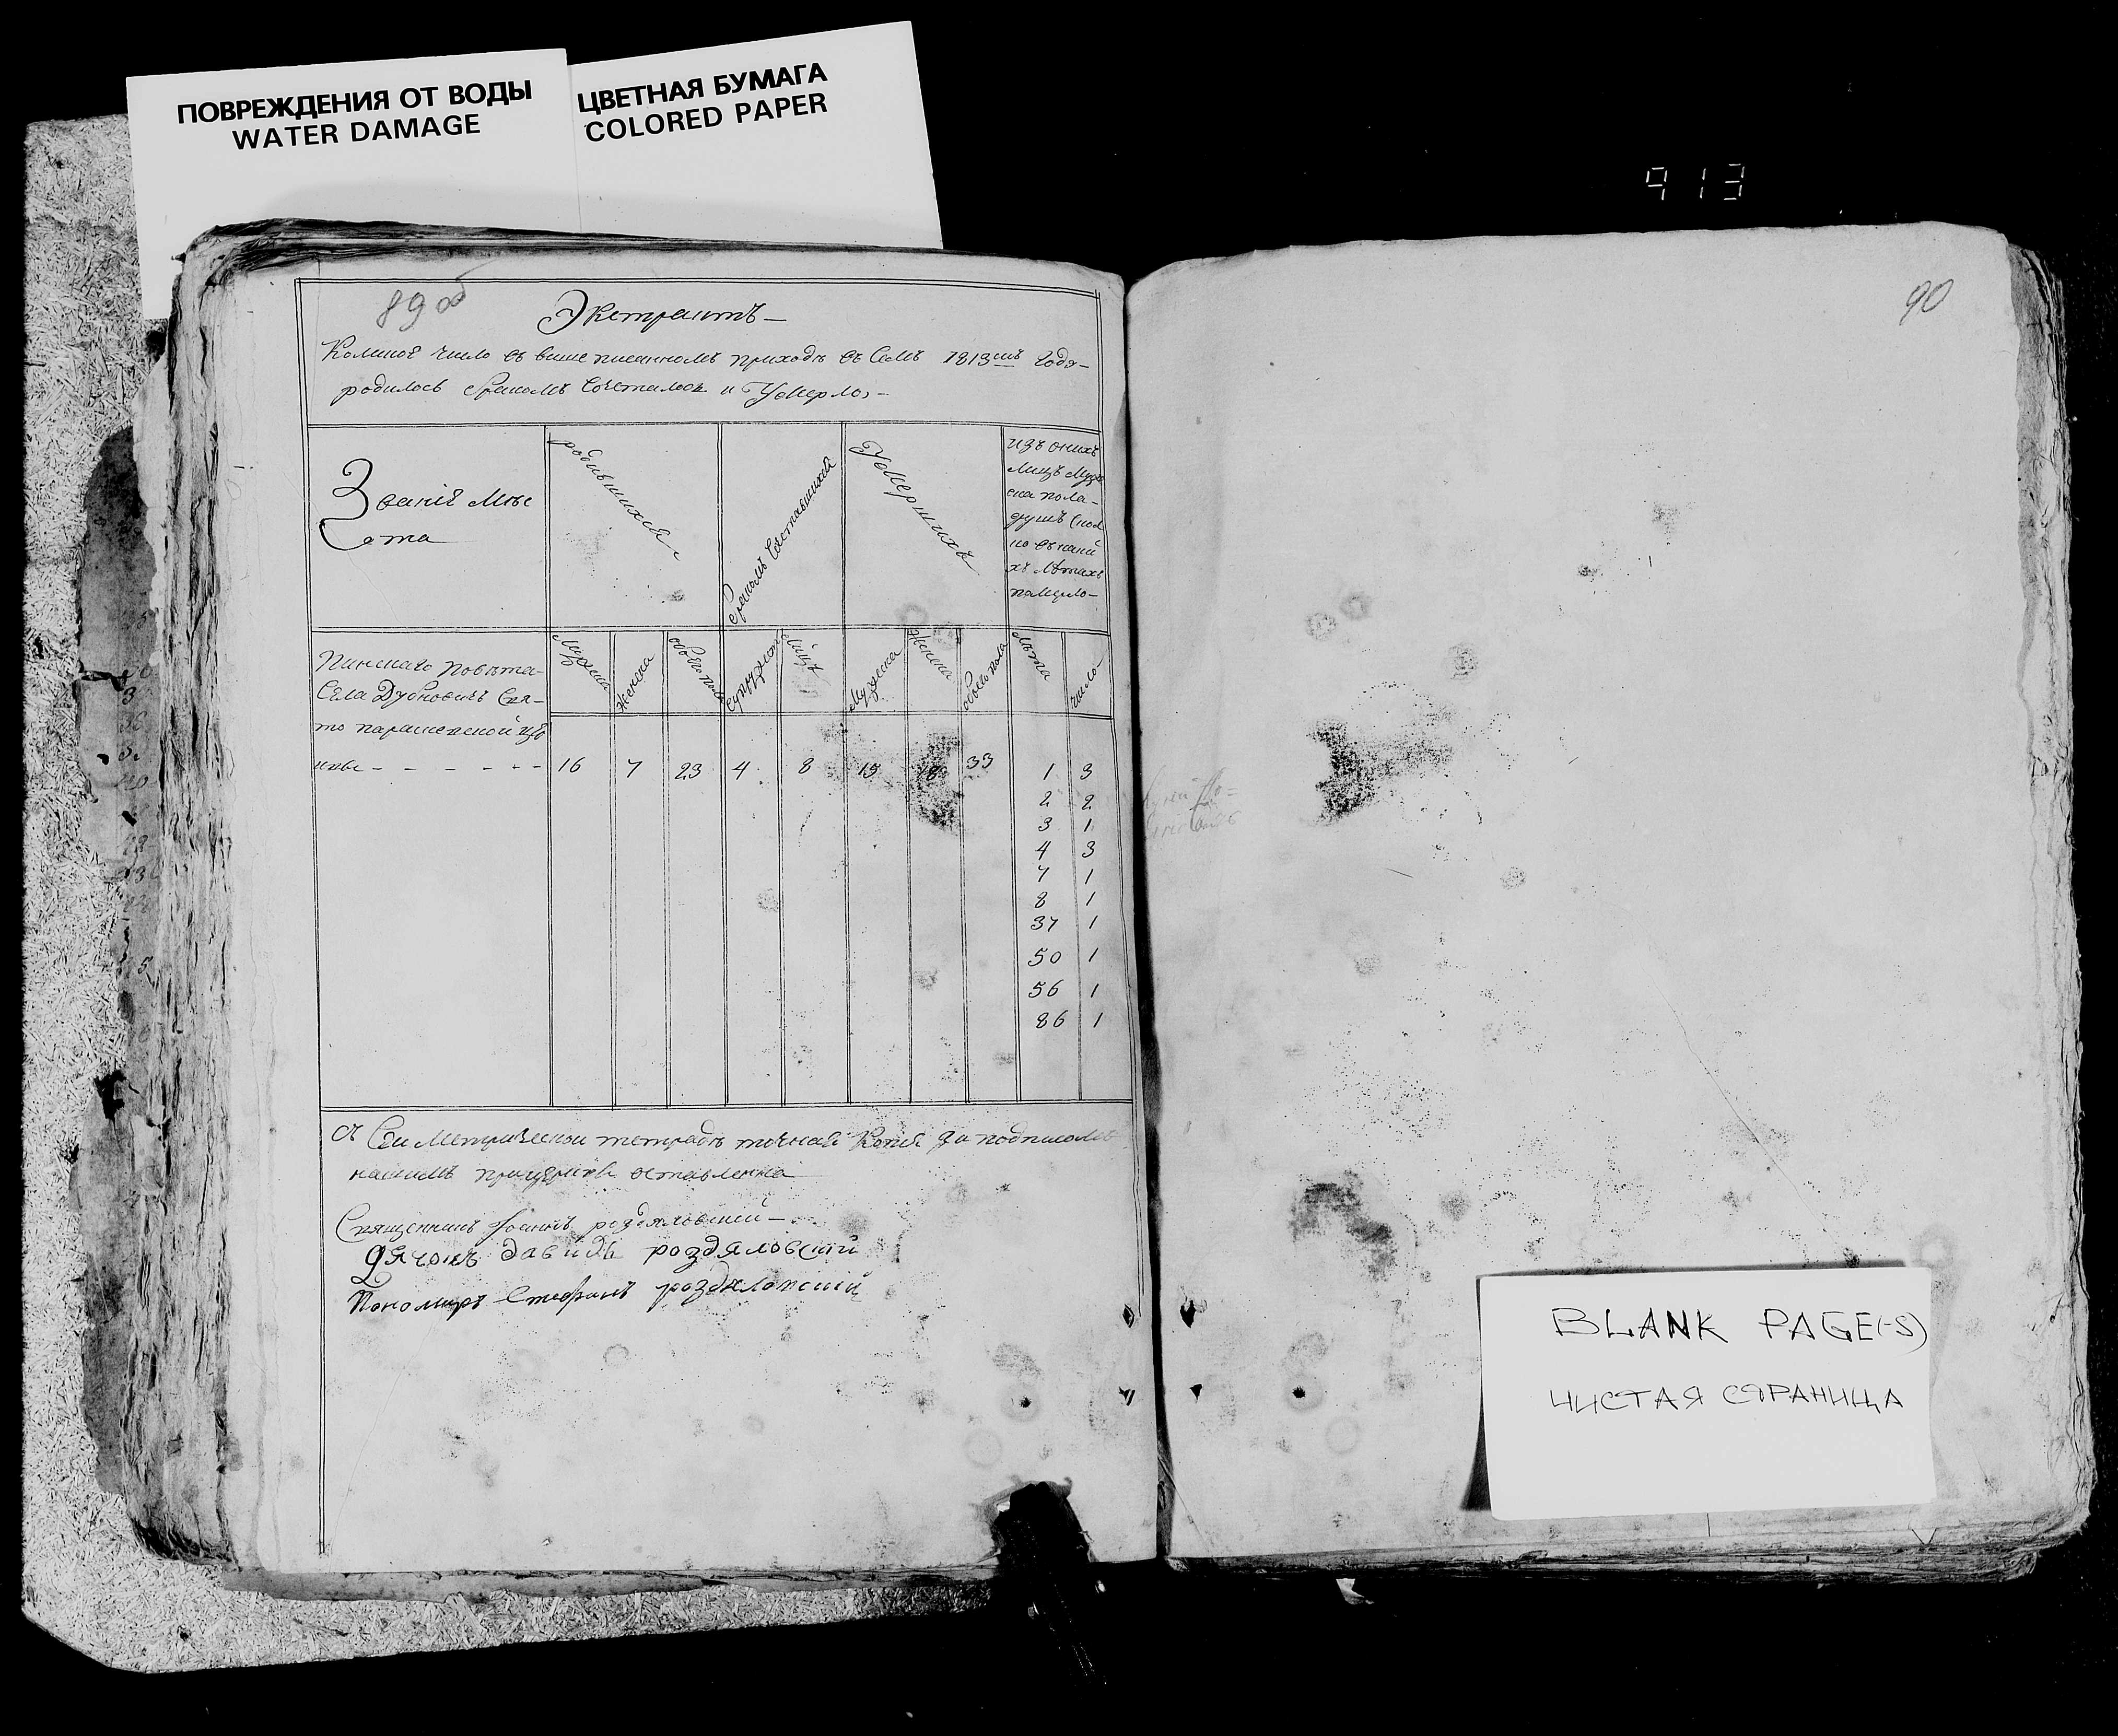 ПОВРЕЖДЕНИЯ ОТ ВОДЫ
WATER DAMAGE
ЦВЕТНАЯ БУМАГА
COLORED PAPER
913
89 об
90
Экстрактъ
Коликое число въ вишеписанномъ приходѣ въ Семъ 1813мъ Годѣ
родилось Бракомъ Сочеталось и Умерло,
Званіе Мѣс
ста
родившихся
Бракомъ Сочетавшихся
Умершихъ
изъ онихъ
лицъ Мужс
ска пола
душъ
лѣтахъ
помѣрло
Мужска
Женска
обоего пола
Супружст
лицъ
Мужеска
Женска
обоего пола
лѣта
число
Пинскаго повѣта
Села Дубновичъ Свя-
то параскевской цер
кви - - - - - - -
16 7 23 4 8 15 18 33 1 3
2 2
3 1
4 3
7 1
8 1
37 1
50 1
56 1
86 1
Съ Сеи Метрической тетради точная Копія за подписомъ
нашимъ прицеркви оставленна
Священникъ Іоаннъ роздяловский
Дячокъ давидъ роздяловский
Пономаръ Стефанъ роздяловский
BLANK PAGE(-S)
ЧИСТАЯ СТРАНИЦА